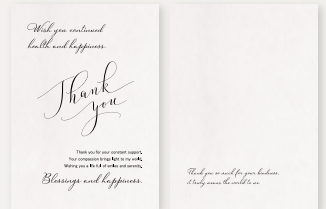 Wish you continued
health and happiness.
Thank
you
Thank you for your constant support,
Your compassion brings light to my world,
Wishing you a life full of smiles and serenity,
Blessings and happiness.
Thank you so much for your kindness,
it truly means the world to me.